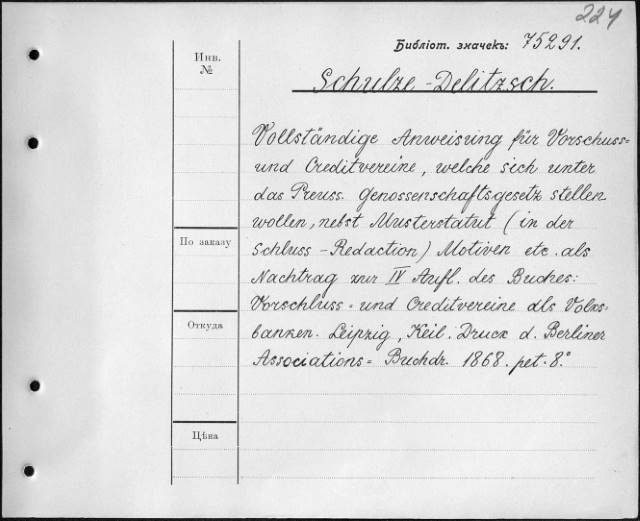 224
Библіот. значекъ: 75291.
Инв.
№
Schulze-Delitzsch.
Vollständige Anweisung für Vorschuss=
und Creditvereine, welche sich unter
das Preuss. Genossenschaftsgesetz stellen
wollen, nebst Musterstatut (in der
По заказу
Schluss-Redaction) Motiven etc. als
Nachtrag zur IV Aufl. des Buches:
Vorschluss- und Creditvereine als Volks-
Откуда
banken. Leipzig, Keil. Druck d. Berliner
Associations= Buchdr. 1868. pet-8.°
Цѣна